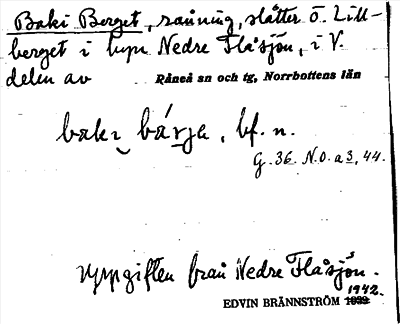 Baki Berget, sänning, slåtter ö. Lill-
berget i byn Nedre Flåsjön, i V.
delen av Råneå sn och tg, Norrbottens län
baki bárja, bf. n.
G. 36. N.O. a 3, 44.
Uppgiften från Nedre Flåsjön.
1942.
EDVIN BRÄNNSTRÖM 1939